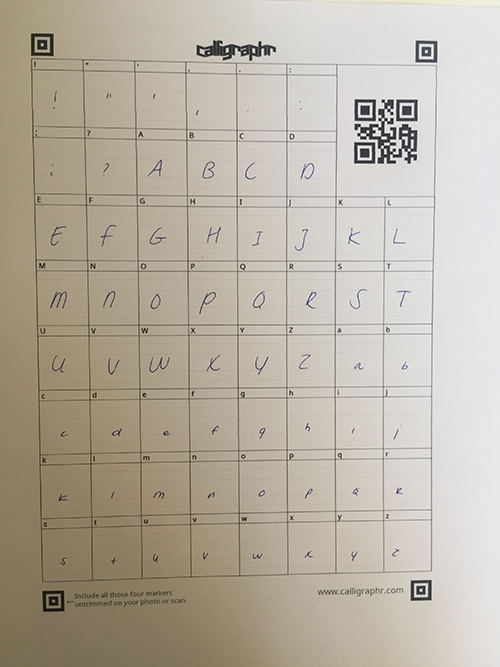 calligraphr
! " ' , . :
! " ' , . :
; ? A B C D
; ? A B C D
E F G H I J K L
E F G H I J K L
M N O P Q R S T
M n O P Q R S T
U V W X Y Z a b
U V W X Y Z a b
c d e f g h i j
c d e f g h i j
k l m n o p q r
k l m n o p q r
s t u v w x y z
s t u v w x y z
←Include all those four markers
untrimmed on your photo or scan.
www.calligraphr.com